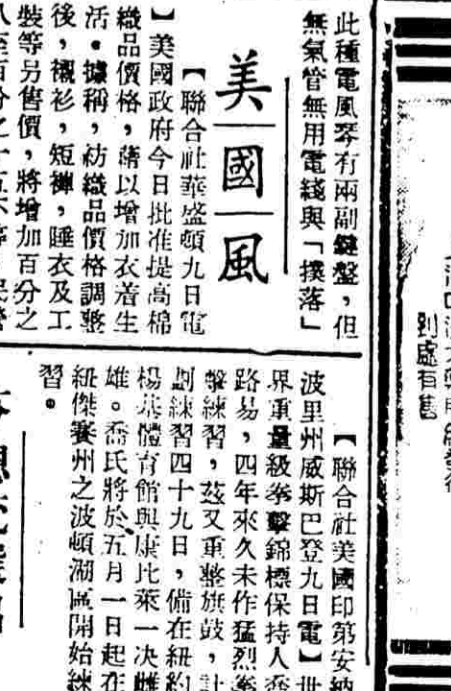 此種電風琴有兩副鍵盤，但
無氣管無用電綫與「撲落」
美國風
【聯合社華盛頓九日電
】美國政府今日批准提高棉
織品價格，藉以增加衣着生
活。據稱，紡織品價格調整
後，襯衫，短褲，睡衣及工
裝等另售價，將增加百分之
【聯合社美國印第安納
波里州威斯巴登九日電】世
界重量級拳擊錦標保持人喬
路易，四年來久未作猛烈拳
擊練習，茲又重整旗鼓，計
劃練習四十九日，備在紐約
楊基體育館與康比萊一決雌
雄。喬氏將於五月一日起在
紐傑賽州之波頓湖區開始練
習。
到處有舊